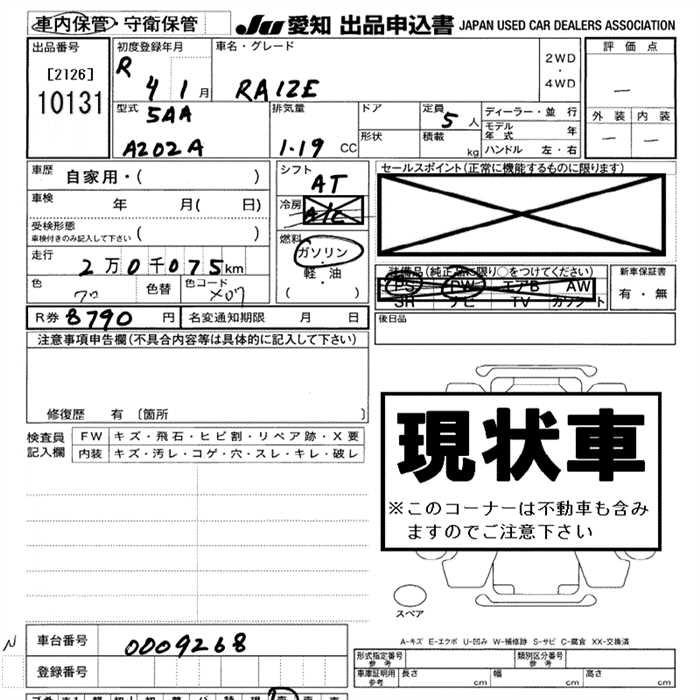 車内保管・守衛保管 愛知 出品申込書 JAPAN USED CAR DEALERS ASSOCIATION
出品番号 初度登録年月 車名・グレード 評価点
[2126] R 4 1 月 RAIZE 2WD・4WD —
10131 型式 排気量 ドア 定員 ディーラー・並行 外装 内装
5AA 5人 モデル年式 年 — —
A202A 1.19 CC 形状 積載 kg ハンドル 左・右
車歴 自家用・( ) シフト AT セールスポイント(正常に機能するものに限ります)
車検 年 月( 日) 冷房 A/C
受検形態 車検付きのみ記入して下さい ( ) 燃料 ガソリン・軽油 ( )
走行 2万0千075km 装備品(純正品に限り○をつけてください) 新車保証書
色 色替 色コード PS PW エアB AW 有・無
SR ナビ TV カワシート
R券 8790 円 名変通知期限 月 日 後日品
注意事項申告欄(不具合内容等は具体的に記入して下さい)
現状車
※このコーナーは不動車も含み
ますのでご注意下さい
修復歴 有 [箇所 ]
検査員記入欄 FW キズ・飛石・ヒビ割・リペア跡・X要
内装 キズ・汚レ・コゲ・穴・スレ・キレ・破レ
スペア
A-キズ E-エクボ U-凹み W-補修跡 S-サビ C-腐食 XX-交換済
N 車台番号 0009268 形式指定番号 参考 類別区分番号 参考
登録番号 車庫証明用 参考 長さ cm 幅 cm 高さ cm